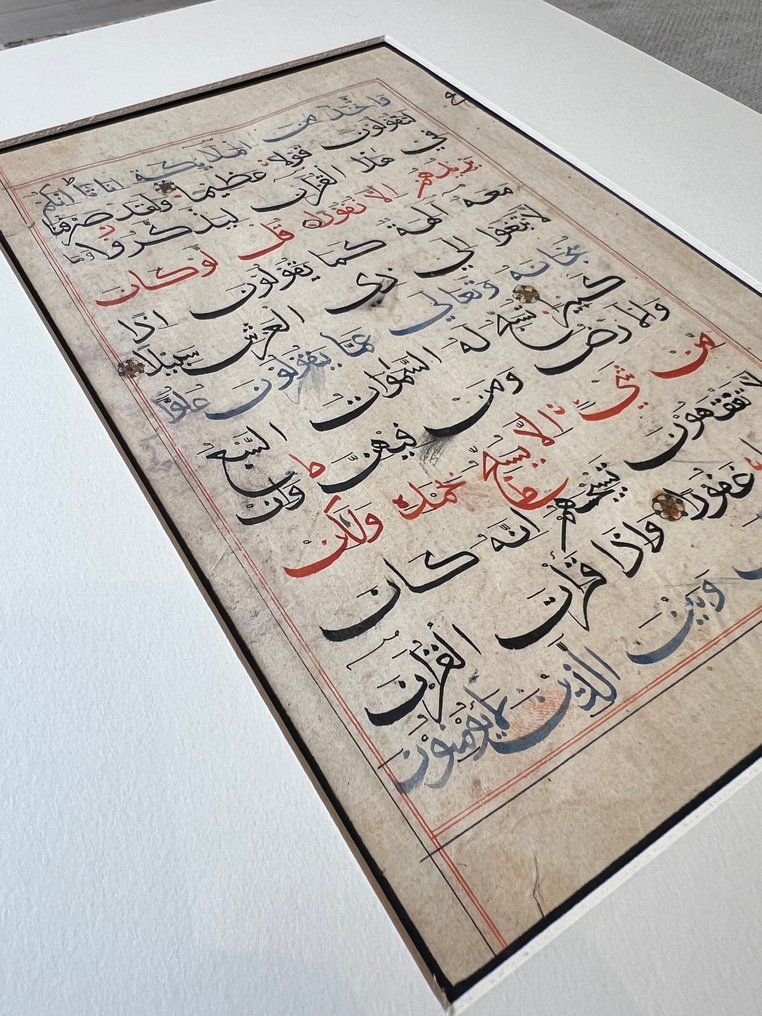 واتخذ من الملايكة اناثا انكم
لتقولون قولا عظيما ولقد صرفنا
في هذا القران ليذكروا وما
يزيدهم الا نفورا قل لو كان
معه الهة كما يقولون اذا
لابتغوا الى ذي العرش سبيلا
سبحانه وتعالى عما يقولون علوا
كبيرا تسبح له السموات السبع
والارض ومن فيهن وان
من شيء الا يسبح بحمده ولكن
لا تفقهون تسبيحهم انه كان
غفورا واذا قرات القران
وبين الذين لا يؤمنون